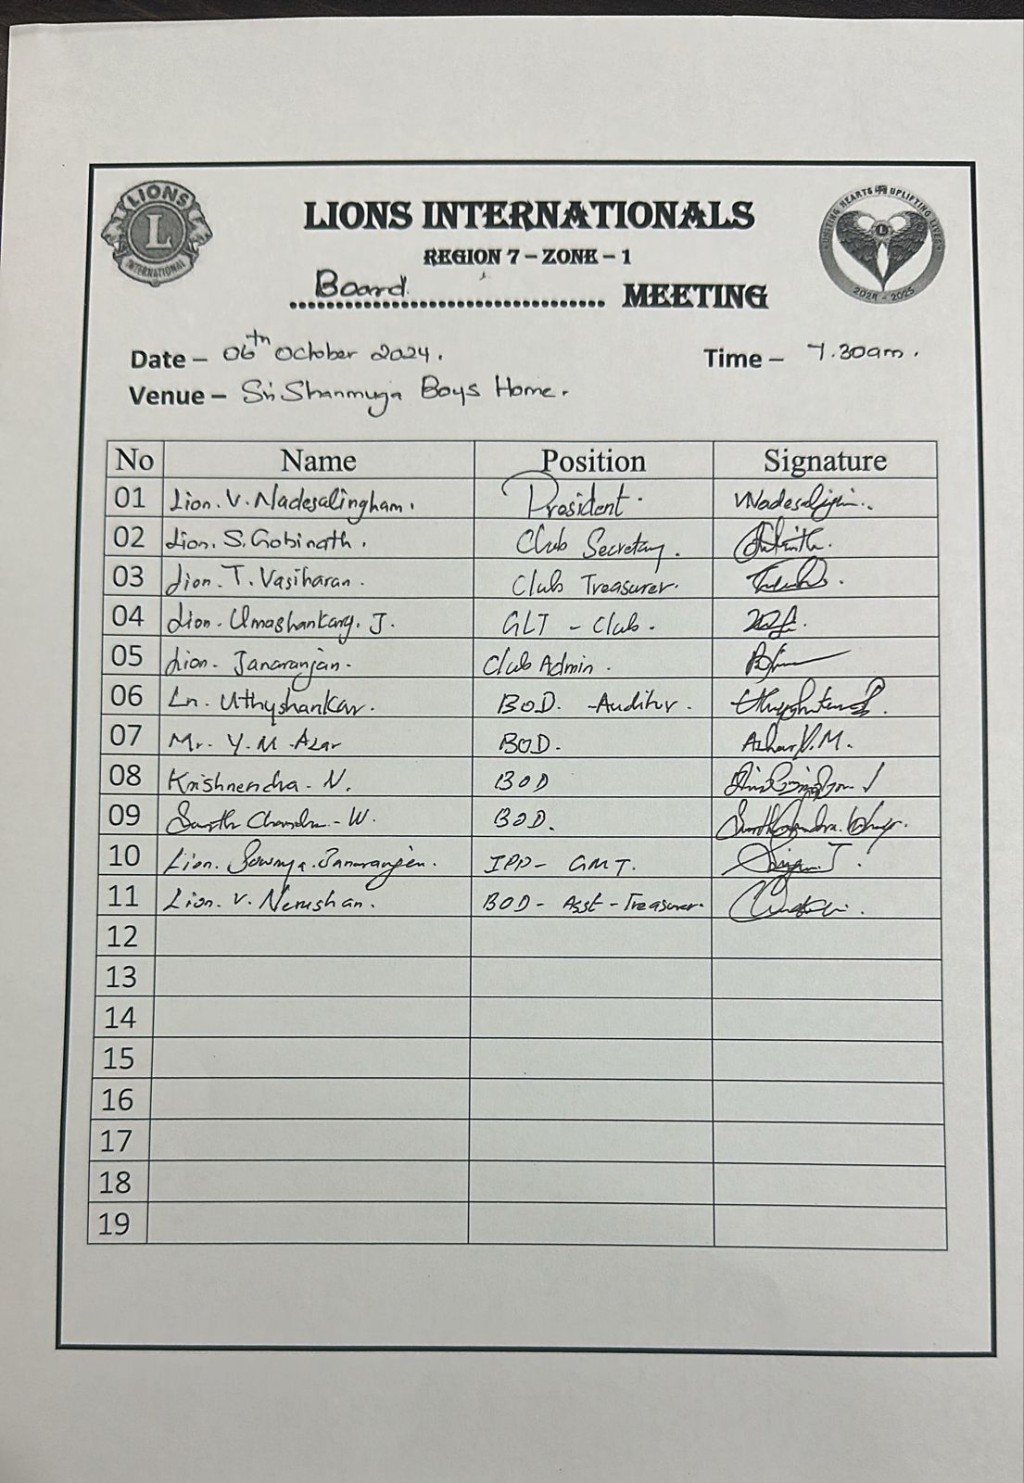 LIONS
L
INTERNATIONAL
LIONS INTERNATIONALS
REGION 7 – ZONE – 1
Board MEETING
UNITING HEARTS UPLIFTING LIVES
L
2024 - 2025
Date – 06th October 2024. Time – 7.30am.
Venue – Sri Shanmuga Boys Home.
No Name Position Signature
01 Lion. V. Nadesalingham. President.
02 Lion. S. Gobinath. Club Secretary.
03 Lion. T. Vasiharan. Club Treasurer.
04 Lion. Umashankary. J. GLT - Club.
05 Lion. Janaranjan. Club Admin.
06 Ln. Uthyshankar. BOD. -Auditor.
07 Mr. Y. M. Azar BOD. Azhar Y.M.
08 Krishnendra. N. BOD
09 Sarath Chandra - W. BOD.
10 Lion. Sowmya. Janaranjan. IPP - GMT.
11 Lion. V. Nerushan. BOD - Asst - Treasurer.
12
13
14
15
16
17
18
19